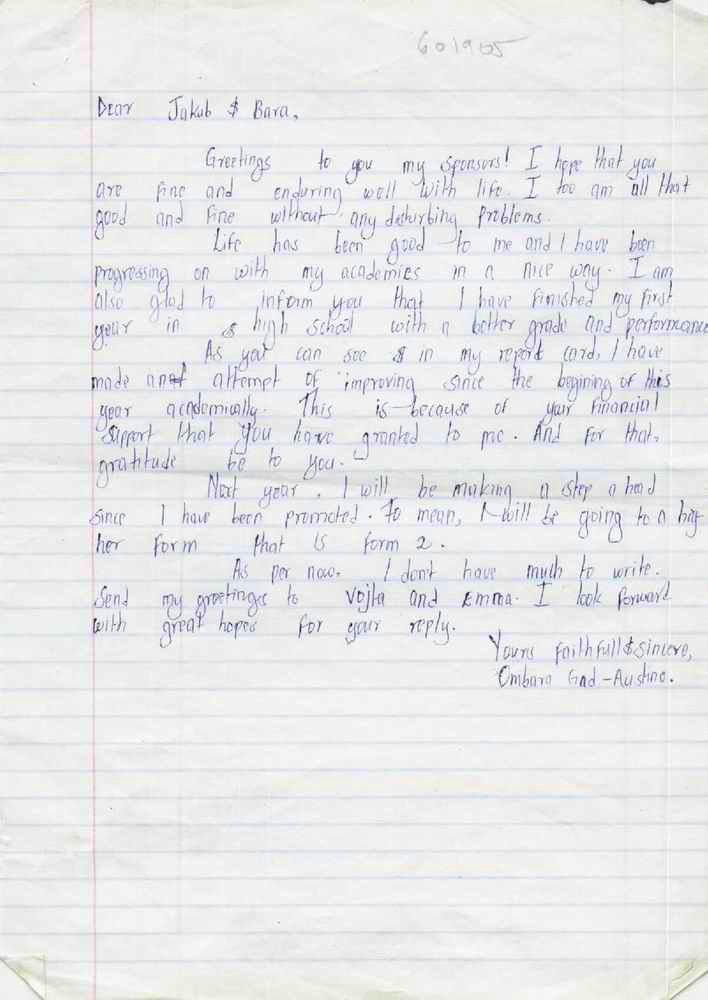 601905
Dear Jakub $ Bara,
Greetings to you my sponsors! I hope that you
are fine and enduring well with life. I too am all that
good and fine without any disturbing problems.
Life has been good to me and I have been
progressing on with my academics in a nice way. I am
also glad to inform you that I have finished my first
year in high school with a better grade and performance
As you can see in my report card, I have
made an attempt of improving since the begining of this
year academically. This is because of your financial
support that you have granted to me. And for that,
gratitude be to you.
Next year, I will be making a step a head
since I have been promoted. To mean, I will be going to a hig
her form that is form 2.
As per now, I don't have much to write.
Send my greetings to Vojta and Emma. I look forward
with great hopes for your reply.
Yours faithfull $ sincere,
Ombara Gad-Austine.